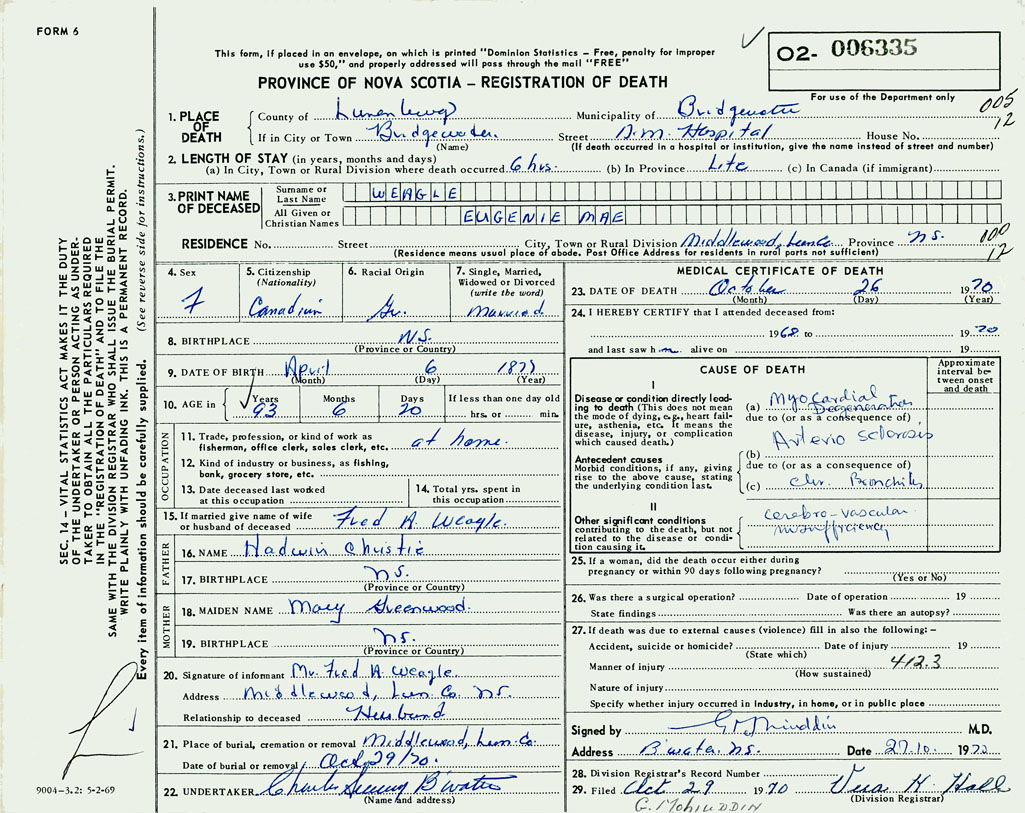 FORM 6
This form, if placed in an envelope, on which is printed "Dominion Statistics – Free, penalty for improper
use $50," and properly addressed will pass through the mail "FREE"
O2- 006335
PROVINCE OF NOVA SCOTIA – REGISTRATION OF DEATH
For use of the Department only
005
12
1. PLACE OF DEATH
County of Lunenburg Municipality of Bridgewater
If in City or Town Bridgewater Street D.M. Hospital House No.
(Name) (If death occurred in a hospital or institution, give the name instead of street and number)
2. LENGTH OF STAY (in years, months and days)
(a) In City, Town or Rural Division where death occurred 6 hrs. (b) In Province Life (c) In Canada (if immigrant)
3. PRINT NAME OF DECEASED
Surname or Last Name WEAGLE
All Given or Christian Names EUGENIE MAE
RESIDENCE No. Street City, Town or Rural Division Middlewood, Lun Co. Province N.S.
100
12
(Residence means usual place of abode. Post Office Address for residents in rural parts not sufficient)
4. Sex F
5. Citizenship (Nationality) Canadian
6. Racial Origin Gr.
7. Single, Married, Widowed or Divorced (write the word) Married
8. BIRTHPLACE N.S.
(Province or Country)
9. DATE OF BIRTH April 6 1877
(Month) (Day) (Year)
10. AGE in Years 93 Months 6 Days 20 If less than one day old hrs. or min.
OCCUPATION
11. Trade, profession, or kind of work as fisherman, office clerk, sales clerk, etc. at home.
12. Kind of industry or business, as fishing, bank, grocery store, etc.
13. Date deceased last worked at this occupation
14. Total yrs. spent in this occupation
15. If married give name of wife or husband of deceased Fred A. Weagle.
FATHER
16. NAME Hadwin Christie
17. BIRTHPLACE N.S.
(Province or Country)
MOTHER
18. MAIDEN NAME Mary Greenwood.
19. BIRTHPLACE N.S.
(Province or Country)
20. Signature of informant Mr. Fred A. Weagle.
Address Middlewood, Lun. Co. N.S.
Relationship to deceased Husband
21. Place of burial, cremation or removal Middlewood, Lun. Co.
Date of burial or removal Oct. 29/70.
22. UNDERTAKER Charles B'water
(Name and address)
MEDICAL CERTIFICATE OF DEATH
23. DATE OF DEATH October 26 1970
(Month) (Day) (Year)
24. I HEREBY CERTIFY that I attended deceased from:
1968 to 1970
and last saw h m alive on 19
CAUSE OF DEATH
Approximate interval between onset and death
I
Disease or condition directly leading to death (This does not mean the mode of dying, e.g., heart failure, asthenia, etc. It means the disease, injury, or complication which caused death.)
(a) Myocardial Degeneration
due to (or as a consequence of)
Arterio sclerosis
Antecedent causes
Morbid conditions, if any, giving rise to the above cause, stating the underlying condition last.
(b)
due to (or as a consequence of)
(c) Chr. Bronchitis
II
Other significant conditions
contributing to the death, but not related to the disease or condition causing it.
cerebro-vascular
insufficiency
25. If a woman, did the death occur either during pregnancy or within 90 days following pregnancy?
(Yes or No)
26. Was there a surgical operation? Date of operation 19
State findings Was there an autopsy?
27. If death was due to external causes (violence) fill in also the following: –
Accident, suicide or homicide? Date of injury 19
(State which)
412.3
Manner of injury
(How sustained)
Nature of injury
Specify whether injury occurred in industry, in home, or in public place
Signed by M.D.
Address B'water N.S. Date 27.10. 1970
28. Division Registrar's Record Number
29. Filed Oct 29 1970 Vera H. Hall
(Division Registrar)
G. MOHIUDDIN
SEC. 14 – VITAL STATISTICS ACT MAKES IT THE DUTY
OF THE UNDERTAKER OR PERSON ACTING AS UNDER-
TAKER TO OBTAIN ALL THE PARTICULARS REQUIRED
IN THE "REGISTRATION OF DEATH" AND TO FILE THE
SAME WITH THE DIVISION REGISTRAR WHO SHALL ISSUE THE BURIAL PERMIT.
WRITE PLAINLY WITH UNFADING INK. THIS IS A PERMANENT RECORD.
Every item of information should be carefully supplied. (See reverse side for instructions.)
9004-3.2: 5-2-69